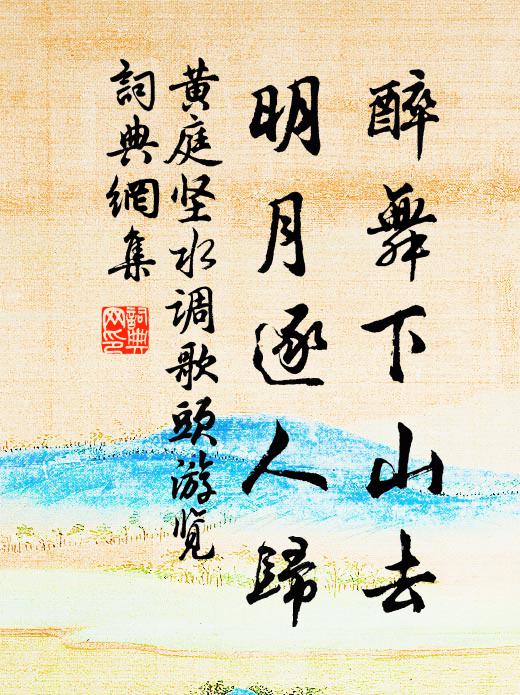 醉舞下山去
明月逐人歸
黃庭坚水调歌頭游览
詞典網集
詞典网印